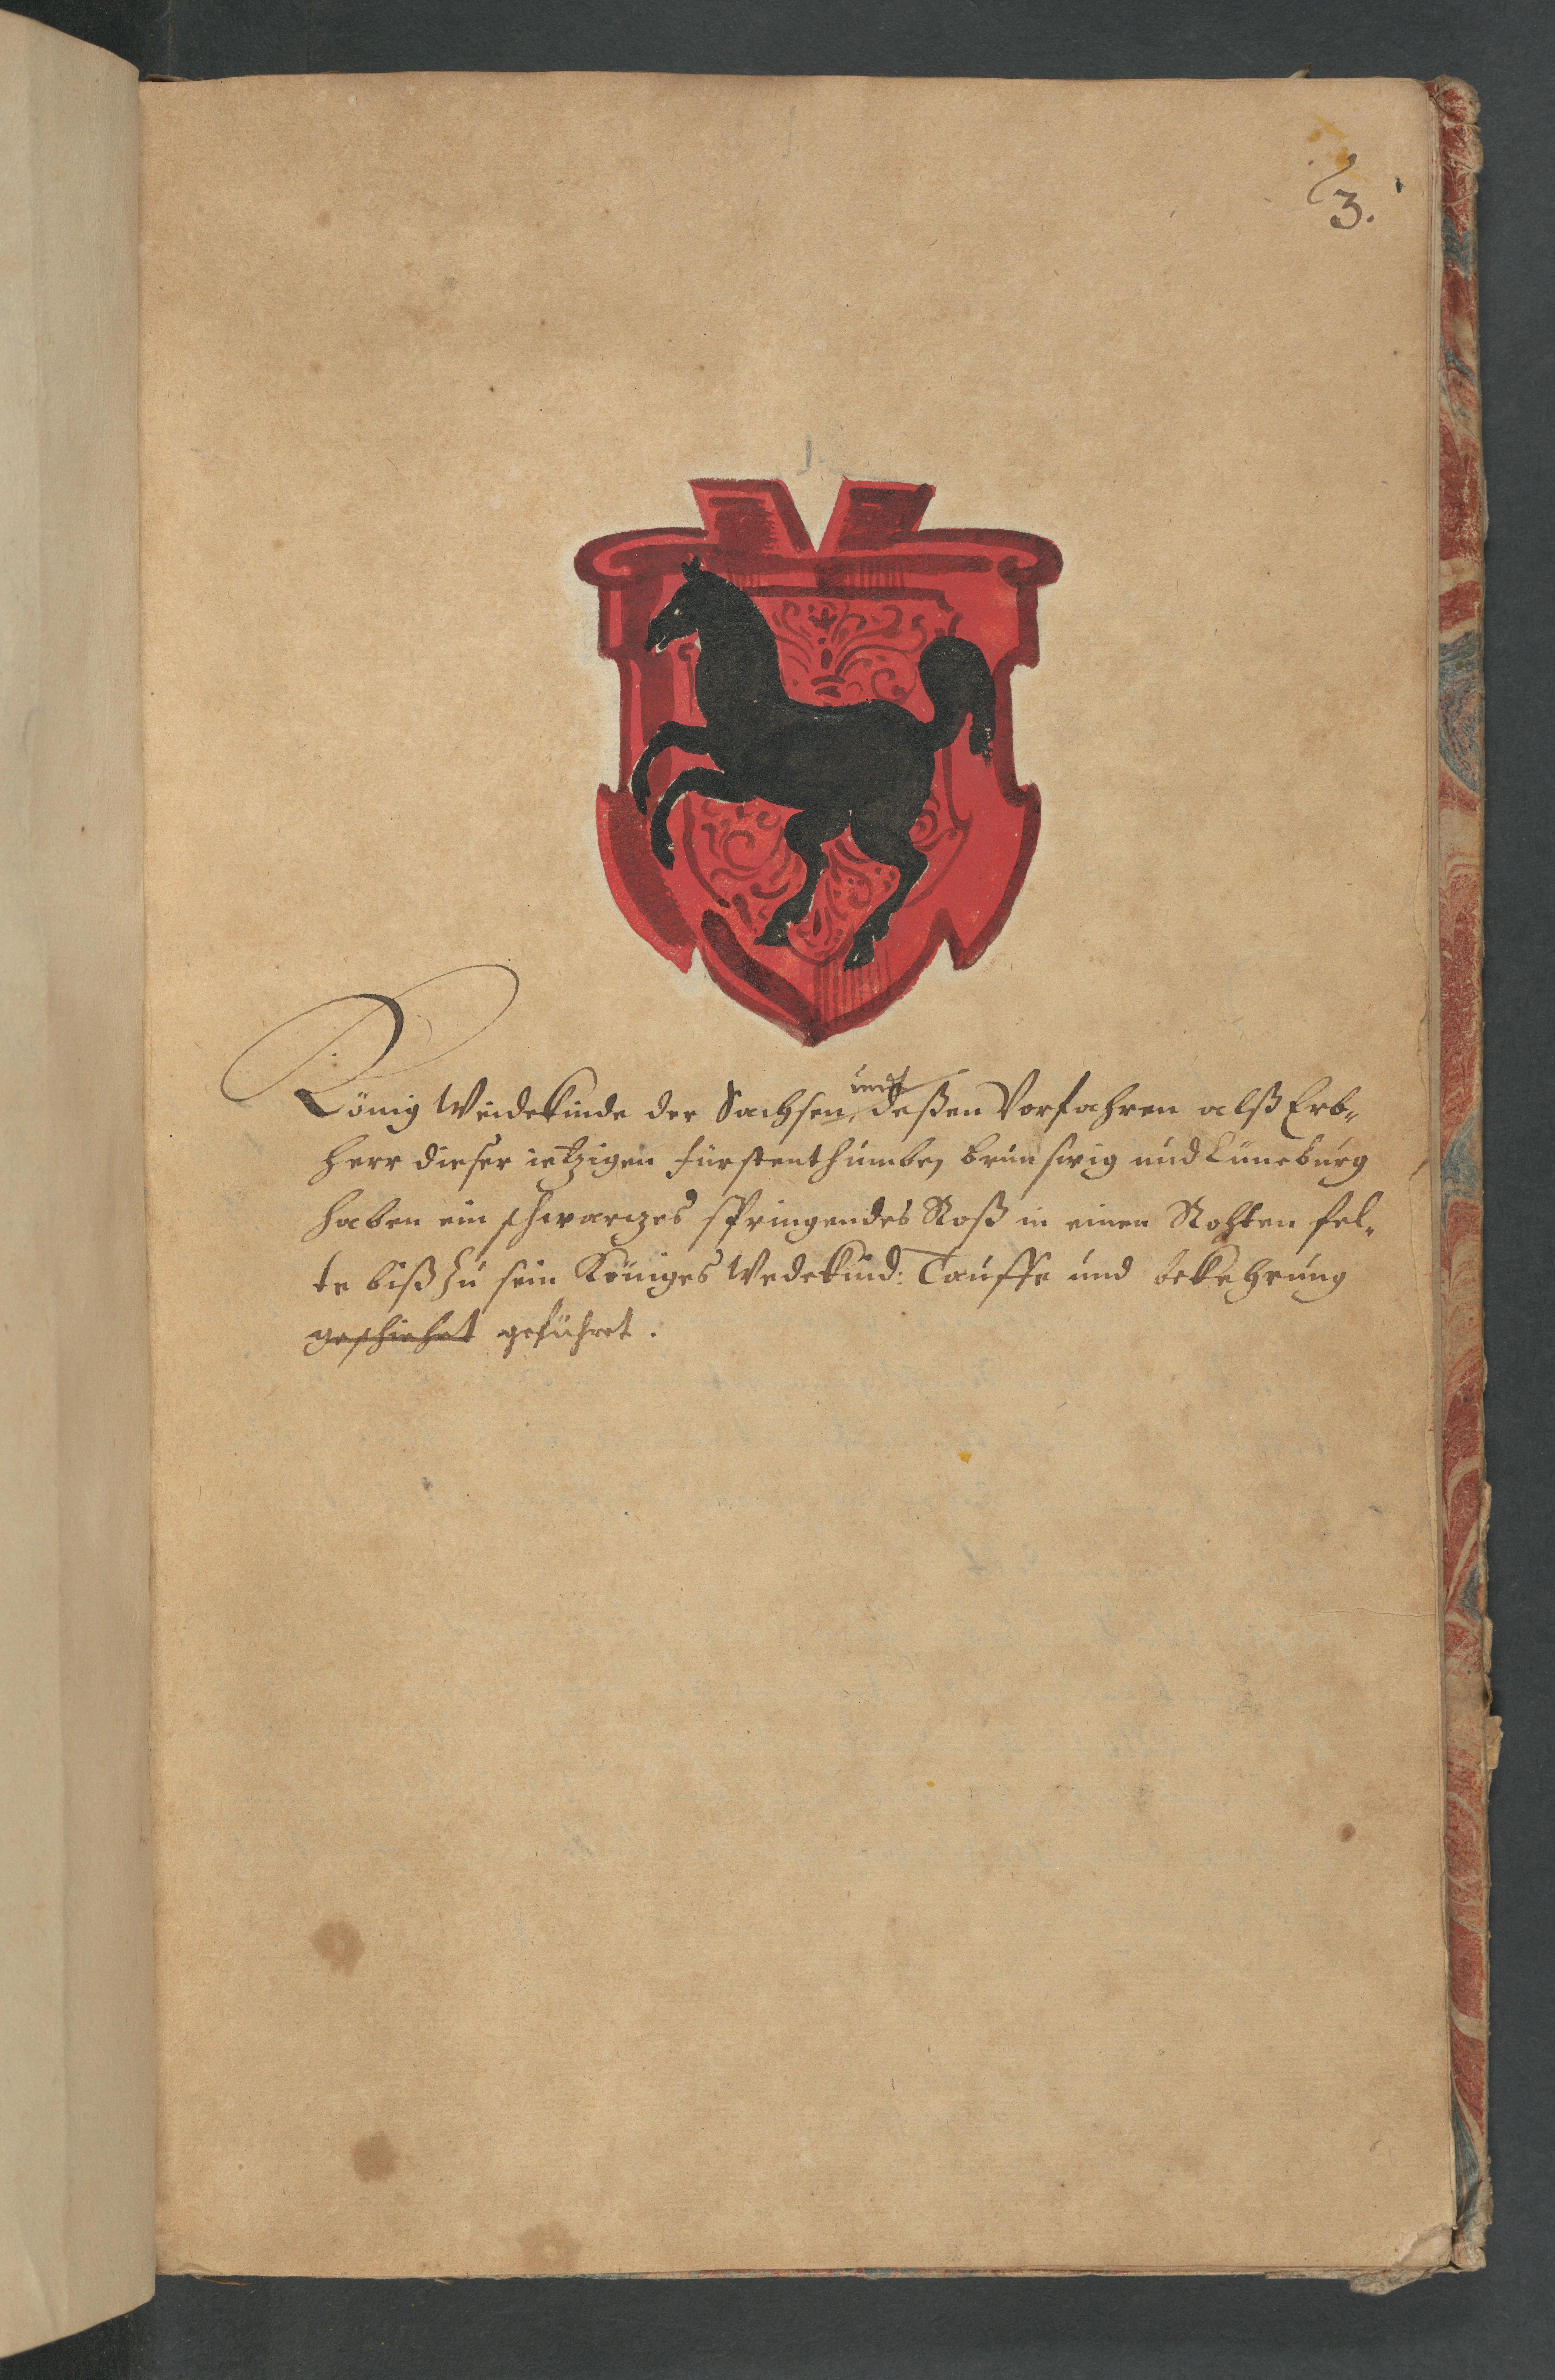 3.
König Weidekinde der Sachsen, und deßen Vorfahren alß Erb-
herr dieser ietzigen fürstenthumbe, brunswig und Lüneburg
haben ein schwarzes springendes Roß in einen Rohten fel-
te biß zu sein Königes Wedekind: Tauffe und bekehrung
geschiehet geführet.